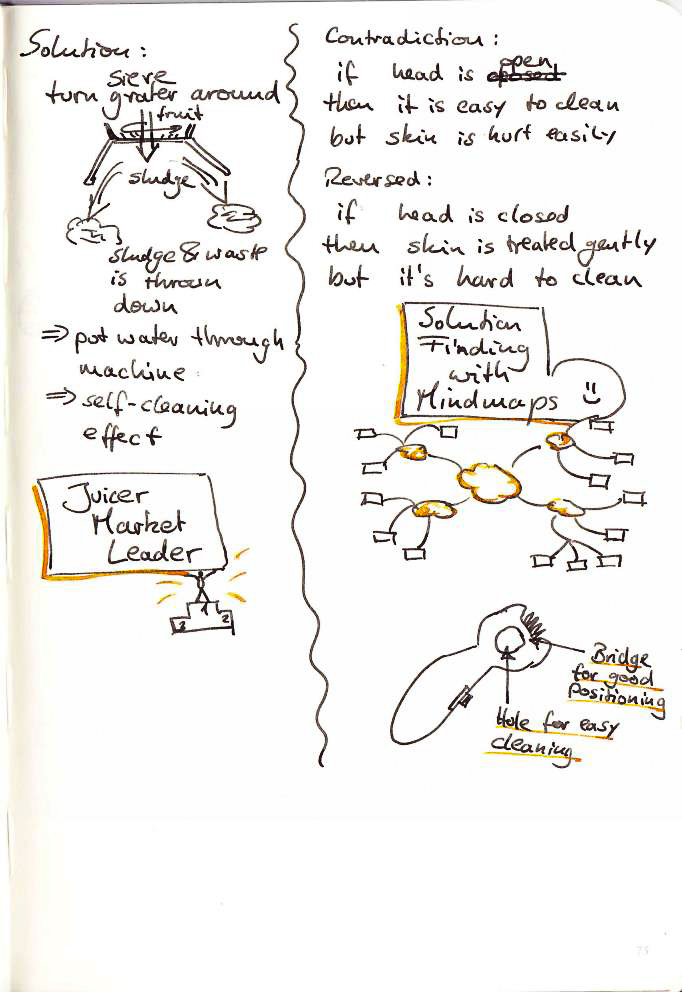 Solution:
sieve
turn grater around
fruit
sludge
sludge & waste
is thrown
down
⇒ put water through
machine
⇒ self-cleaning
effect
Juicer
Market
Leader
1
3 2
Contradiction:
open
if head is closed
then it is easy to clean
but skin is hurt easily
Reversed:
if head is closed
then skin is treated gently
but it's hard to clean
Solution
Finding
with
Mindmaps
Bridge
for good
Positioning
Hole for easy
cleaning